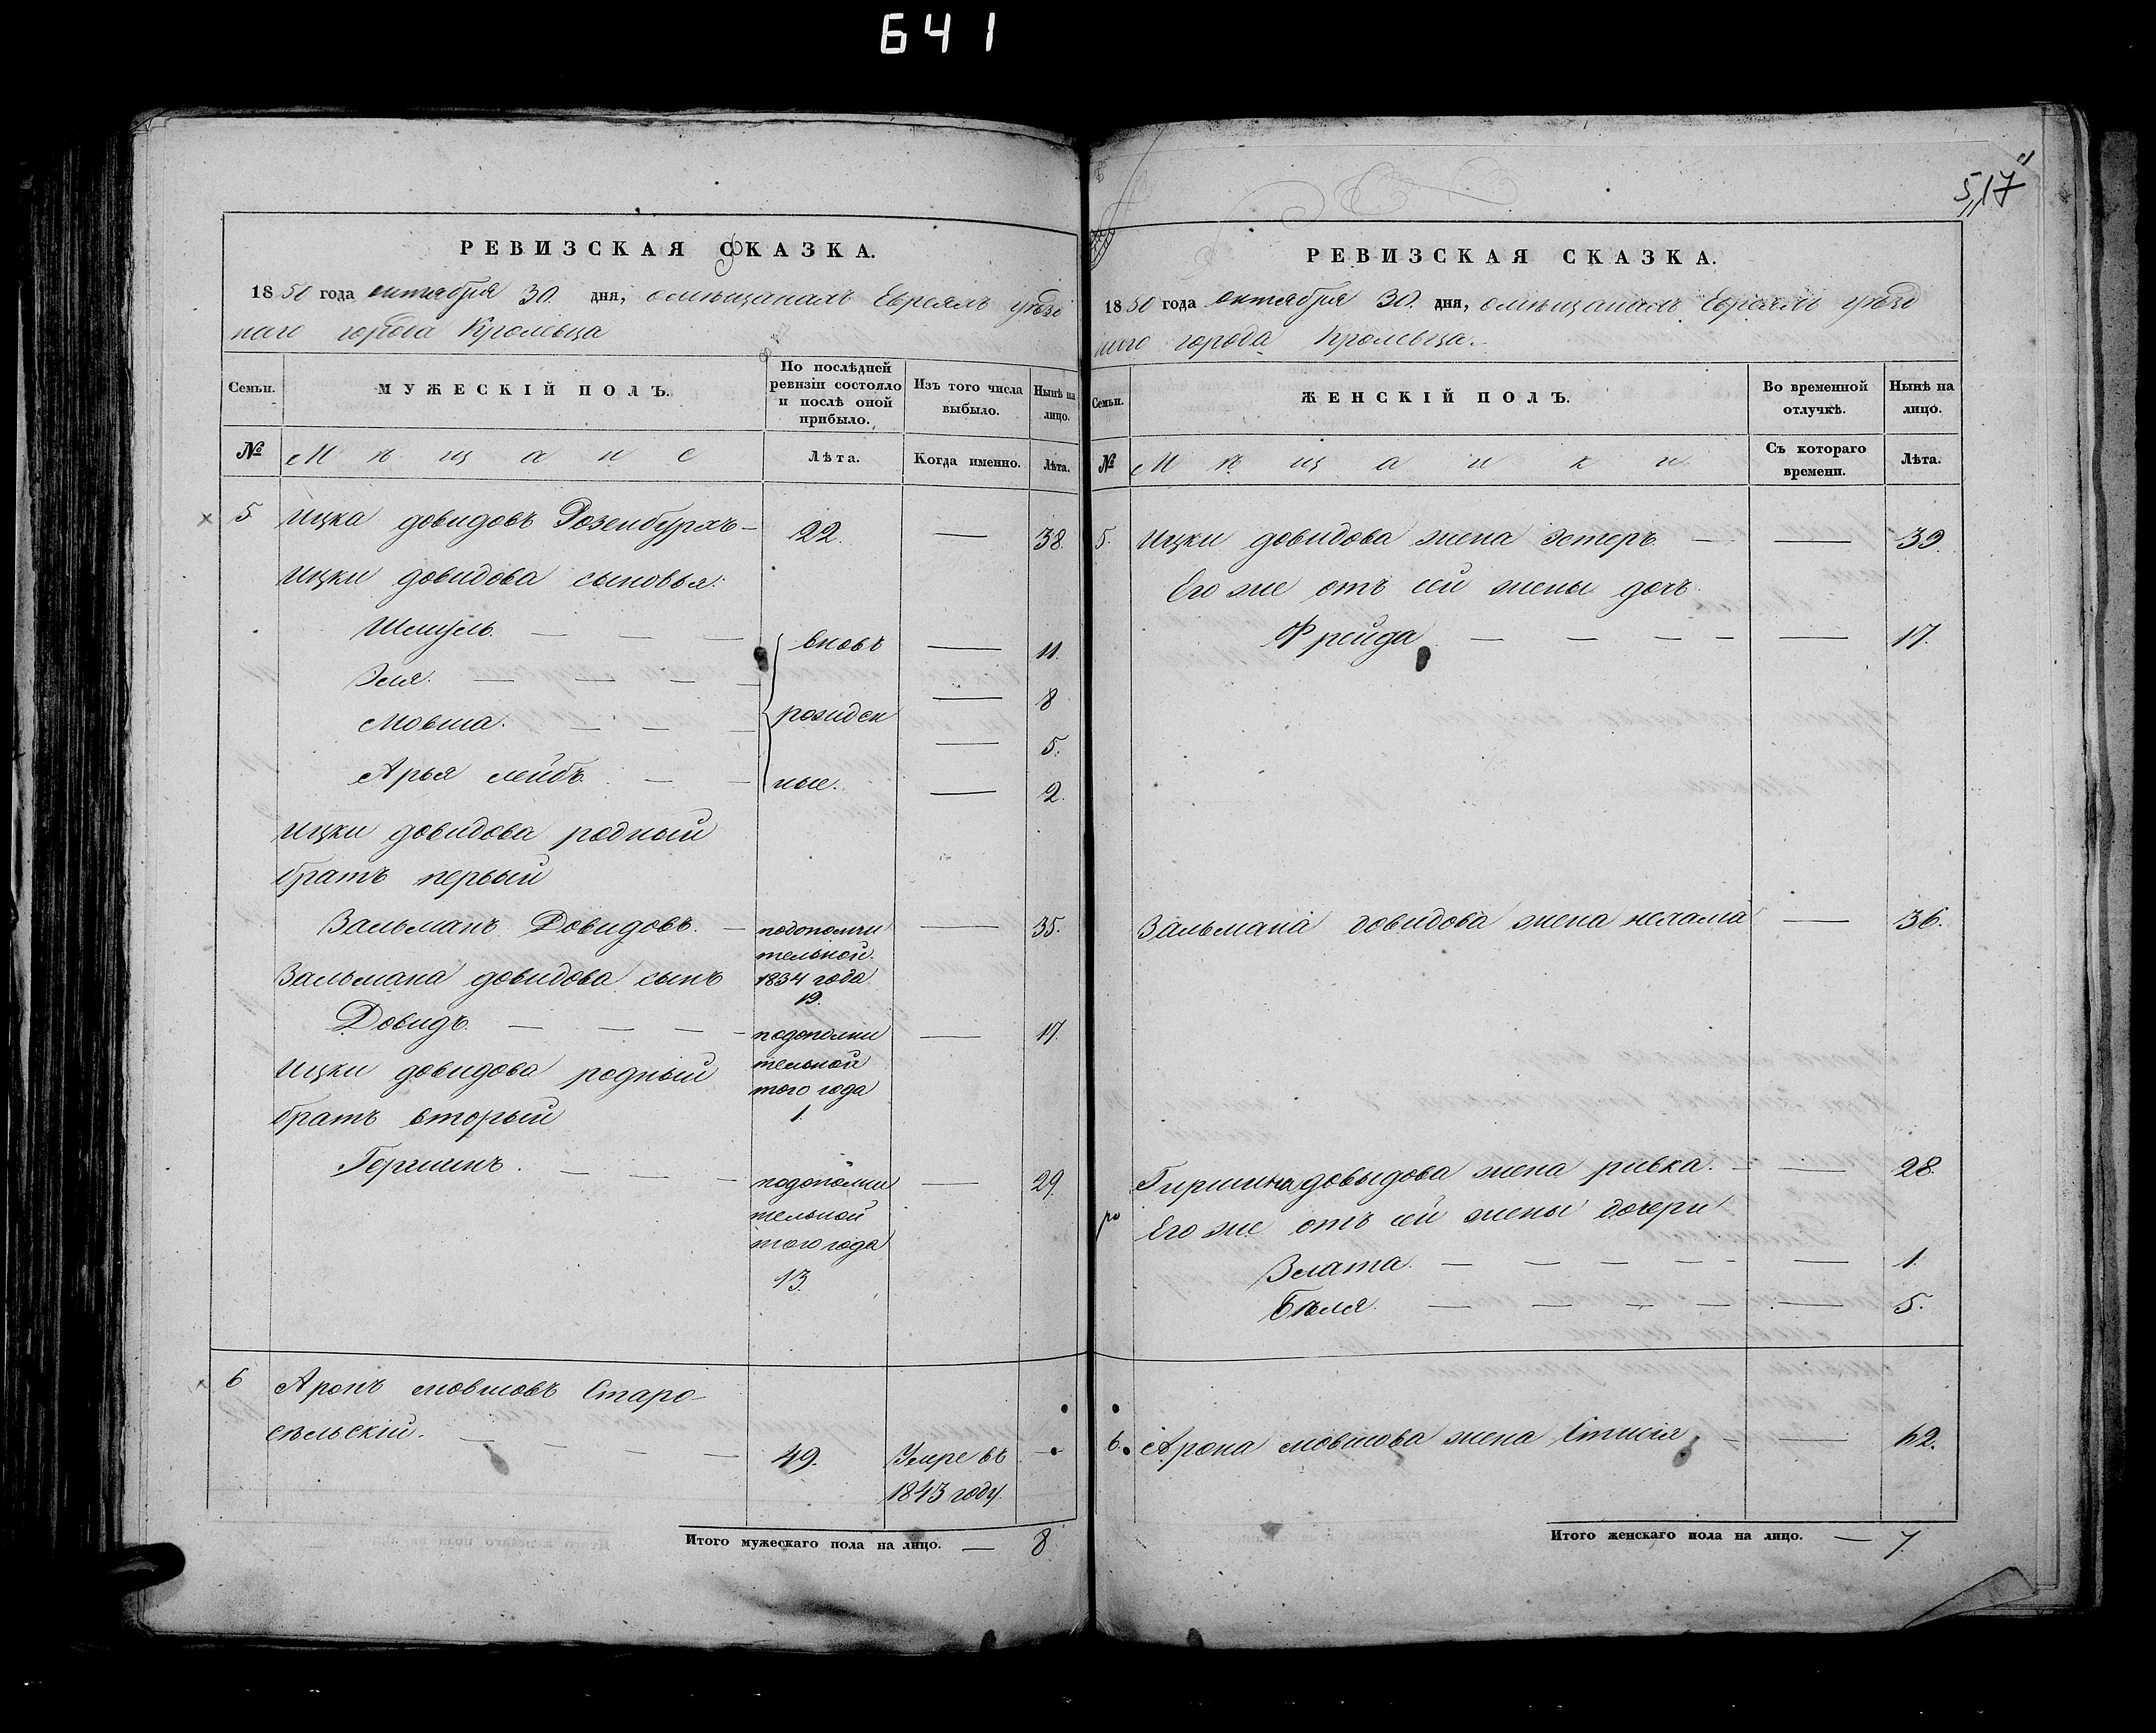 641
5,17
РЕВИЗСКАЯ СКАЗКА.
1850 года октября 30. дня, о мѣщанахъ Евреяхъ уѣзд
наго города Кролевца
Семьи.
МУЖЕСКІЙ ПОЛЪ.
По послѣдней
ревизіи состояло
и послѣ оной
прибыло.
Изъ того числа
выбыло.
Нынѣ на
лицо.
№
Мѣщане
Лѣта.
Когда именно.
Лѣта.
5 Ицка довидовъ Розенбурхъ — 22. — 38.
Ицки довидова сыновья:
Шмуль. — — — вновь — 11.
Эля. — — — — — 8
Мовша. — — — рожден — 5.
Арья лейбъ. — — ные. — 2.
Ицки довидова родный
братъ первый
Зальманъ Довидовъ. — подополни — 35.
тельной.
Зальмана довидова сынъ 1834 года
19.
Довидъ. — — — — подополни — 17.
тельной
Ицки довидова родный того года
братъ вторый 1.
Гершинъ. — — — подополни — 29.
тельной
того года
13.
6 Аронъ мовшовъ Старо-
сѣльскій. — — — — 49. Умре въ —
1843 году.
Итого мужескаго пола на лицо. — 8
РЕВИЗСКАЯ СКАЗКА.
1850 года октября 30. дня, о мѣщанахъ Евреяхъ уѣзд
наго города Кролевца.
Семьи.
ЖЕНСКІЙ ПОЛЪ.
Во временной
отлучкѣ.
Нынѣ на
лицо.
№
Мѣщанки
Съ котораго
времени.
Лѣта.
5. Ицки довидова жена Эстеръ — — 39.
Его же отъ сей жены дочь.
Фрейда — — — — — 17.
Зальмана довидова жена нехама — 36.
Гиршина довыдова жена ривка. — — 28
Его же отъ сей жены дочери
Злата. — — — — — — 1.
Бѣля. — — — — — — 5.
6. Арона мовшова жена — — 62.
Итого женскаго пола на лицо. — 7